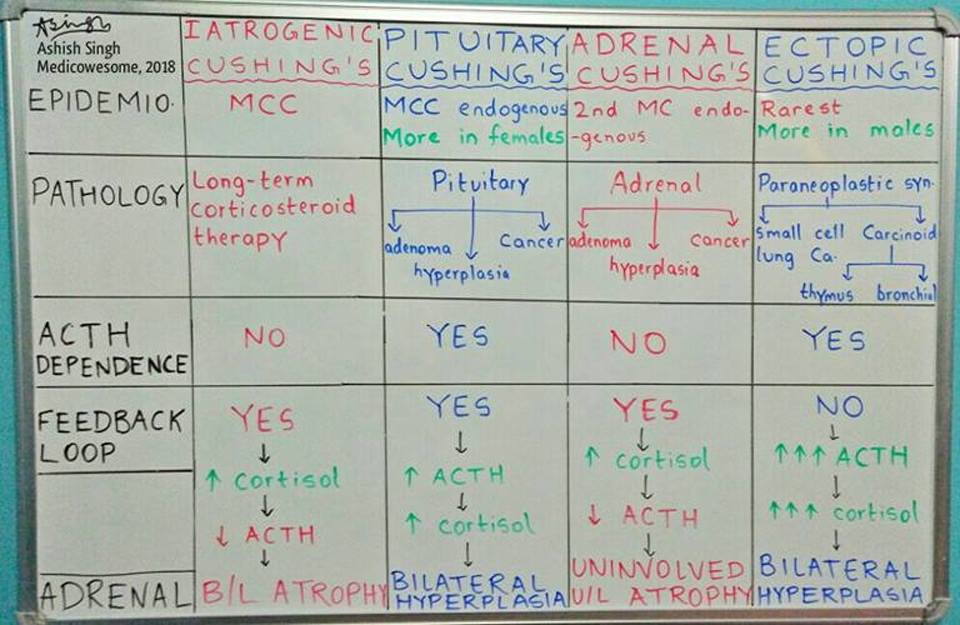 Asingh
Ashish Singh
Medicowesome, 2018
IATROGENIC
CUSHING'S
PITUITARY
CUSHING'S
ADRENAL
CUSHING'S
ECTOPIC
CUSHING'S
EPIDEMIO.
MCC
MCC endogenous
More in females
2nd MC endo-
-genous
Rarest
More in males
PATHOLOGY
Long-term
corticosteroid
therapy
Pituitary
adenoma
Cancer
hyperplasia
Adrenal
adenoma
cancer
hyperplasia
Paraneoplastic syn.
small cell
lung Ca.
Carcinoid
thymus
bronchial
ACTH
DEPENDENCE
NO
YES
NO
YES
FEEDBACK
LOOP
YES
↓
↑ cortisol
↓
↓ ACTH
↓
YES
↓
↑ ACTH
↓
↑ cortisol
↓
YES
↓
↑ cortisol
↓
↓ ACTH
↓
NO
↓
↑↑↑ ACTH
↓
↑↑↑ cortisol
↓
ADRENAL
B/L ATROPHY
BILATERAL
HYPERPLASIA
UNINVOLVED
U/L ATROPHY
BILATERAL
HYPERPLASIA